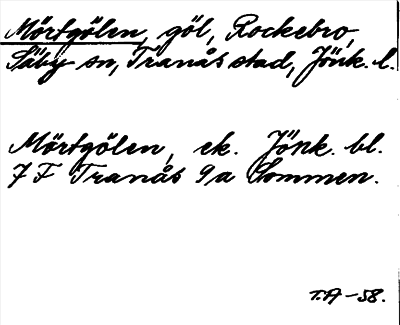 Mörtgölen, göl, Rockebro,
Säby sn, Tranås stad, Jönk. l.
Mörtgölen, ek. Jönk. bl.
7 F Tranås 9a Sommen.
T.A -58.